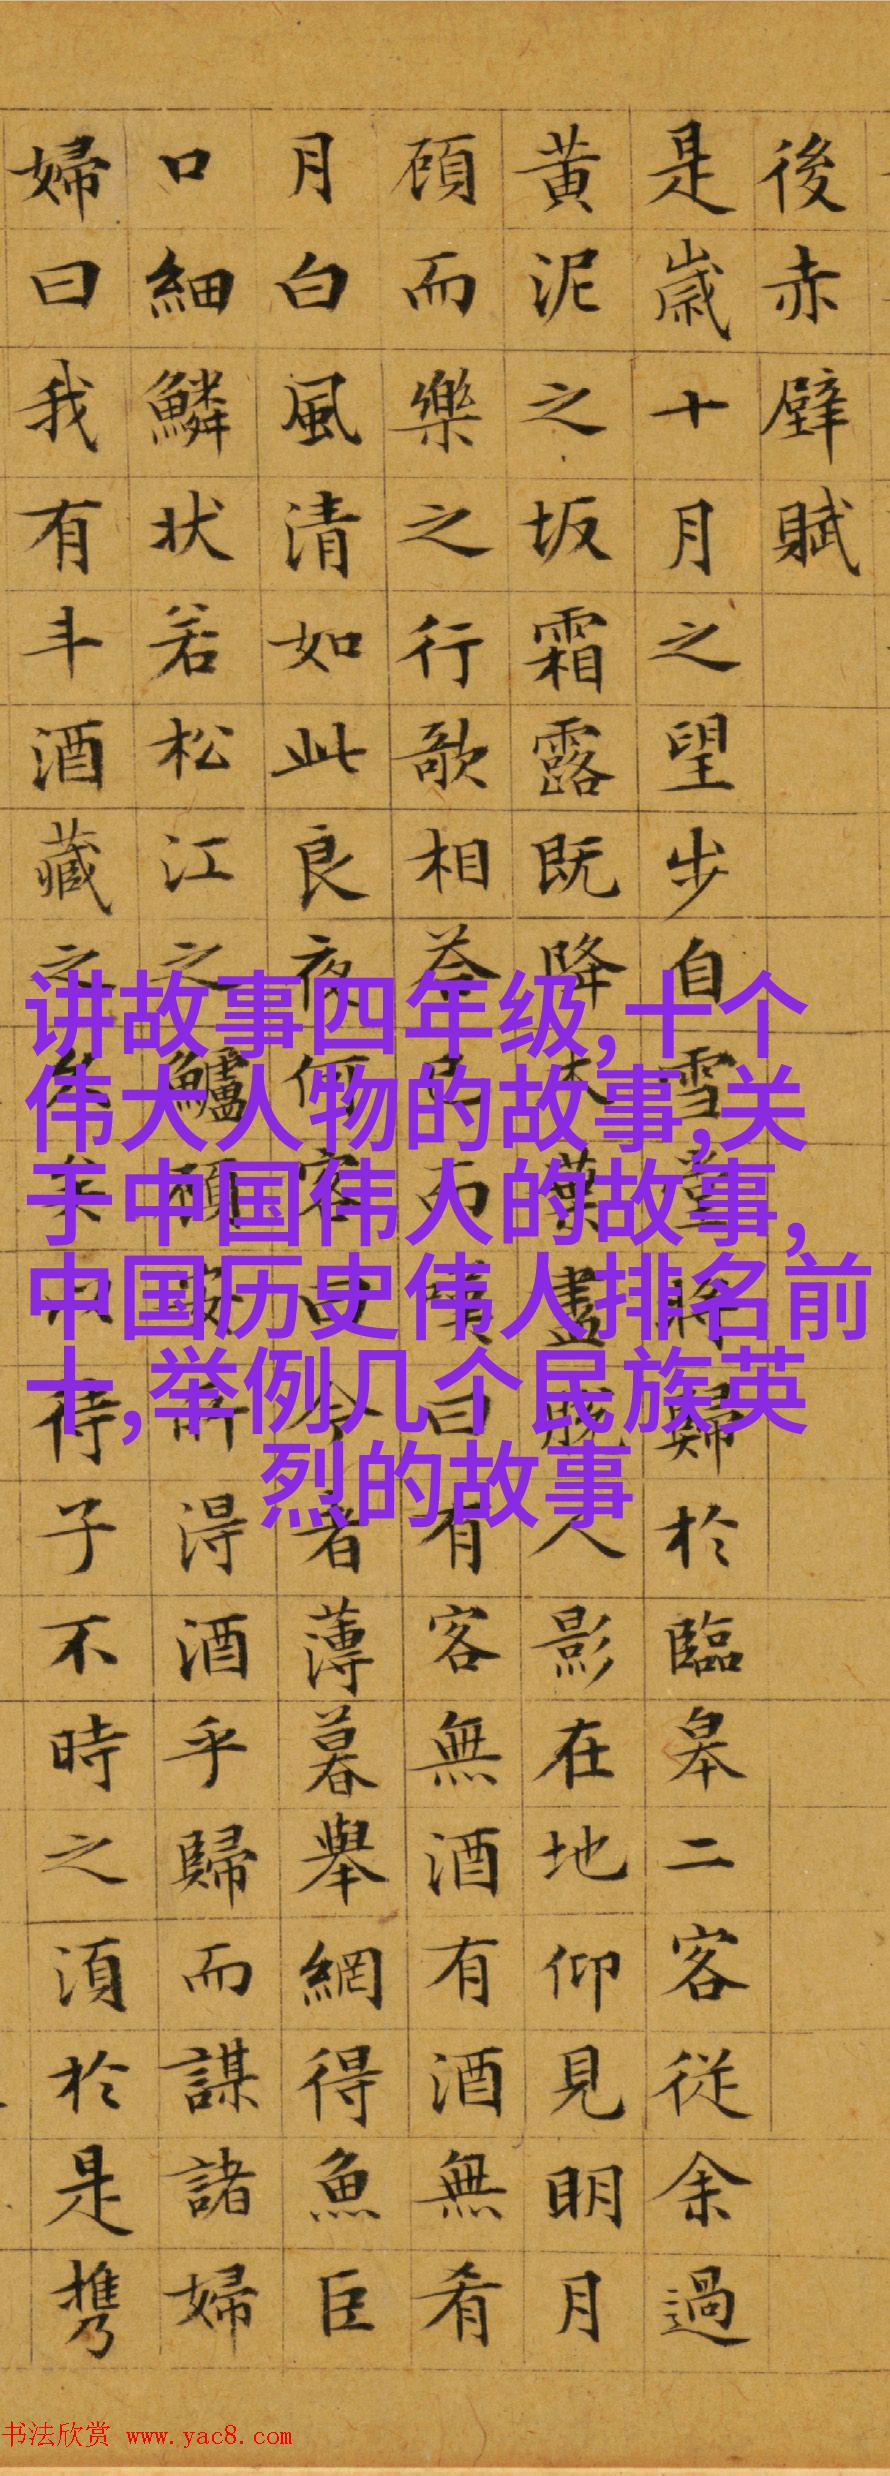 後赤壁賦
是歲十月之望步自雪堂將歸於臨皋二客從余過
黃泥之坂霜露既降木葉盡脫人影在地仰見明月
顧而樂之行歌相荅已而嘆曰有客無酒有酒無肴
月白風清如此良夜何客曰今者薄暮舉網得魚巨
口細鱗狀若松江之鱸顧安所得酒乎歸而謀諸婦
婦曰我有斗酒藏之久矣以待子不時之須於是携
讲故事四年级,十个
伟大人物的故事,关
于中国伟人的故事,
中国历史伟人排名前
十,举例几个民族英
烈的故事
书法欣赏 www.yac8.com